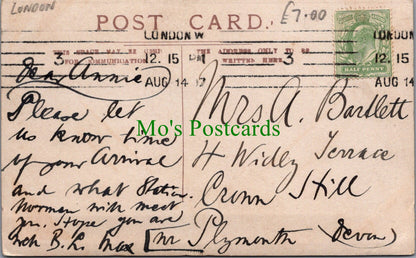 LONDON
£7.00
POST CARD.
LONDON W
THIS SPACE MAY BE USED
FOR COMMUNICATION
THE ADDRESS ONLY TO BE
WRITTEN HERE
3 12.15 PM
AUG 14 07
3 12.15
AUG 14
HALF PENNY
Dear Annie
Please let
us know time
of your Arrival
and what Station
Norman will meet
you. Hope you are
well B. L. Max
Mrs A. Bartlett
4 Widey Terrace
Crown Hill
nr Plymouth Devon
Mo's Postcards